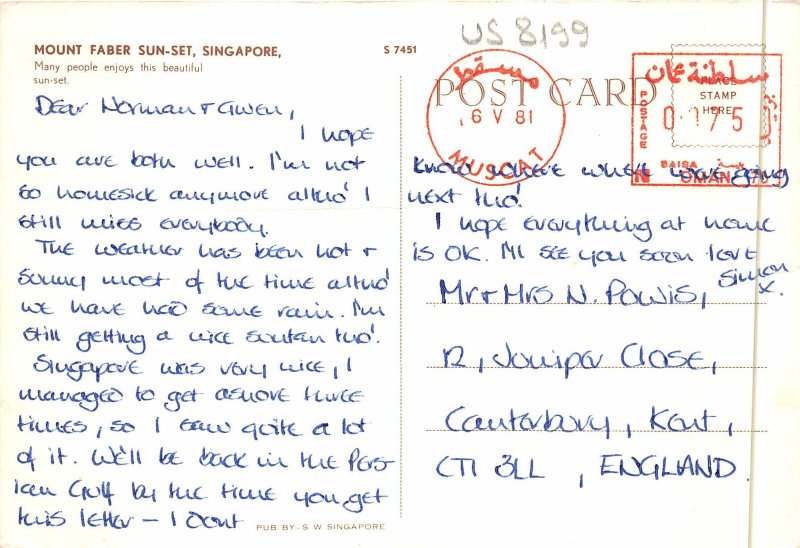 US 8199
MOUNT FABER SUN-SET, SINGAPORE,
S 7451
Many people enjoys this beautiful
sun-set.
POST CARD
مسقط
6 V 81
MUSCAT
سلطنة عمان
PLACE
STAMP
HERE
POSTAGE
بريد
0075
BAISA
بيسة
N
OMAN
Dear Norman & Gwen,
I hope
you are both well. I'm not
so homesick anymore altho' I
still miss everybody.
The weather has been hot &
sunny most of the time altho'
we have had some rain. I'm
still getting a nice suntan tho'.
Singapore was very nice, I
managed to get ashore three
times, so I saw quite a lot
of it. We'll be back in the Pers-
ian Gulf by the time you get
this letter – I dont
know where where we're going
next tho'.
I hope everything at home
is OK. I'll see you soon love
Simon
x.
Mr & Mrs N. Powis,
12, Juniper Close,
Canterbury, Kent,
CT1 3LL, ENGLAND.
PUB BY - S W SINGAPORE